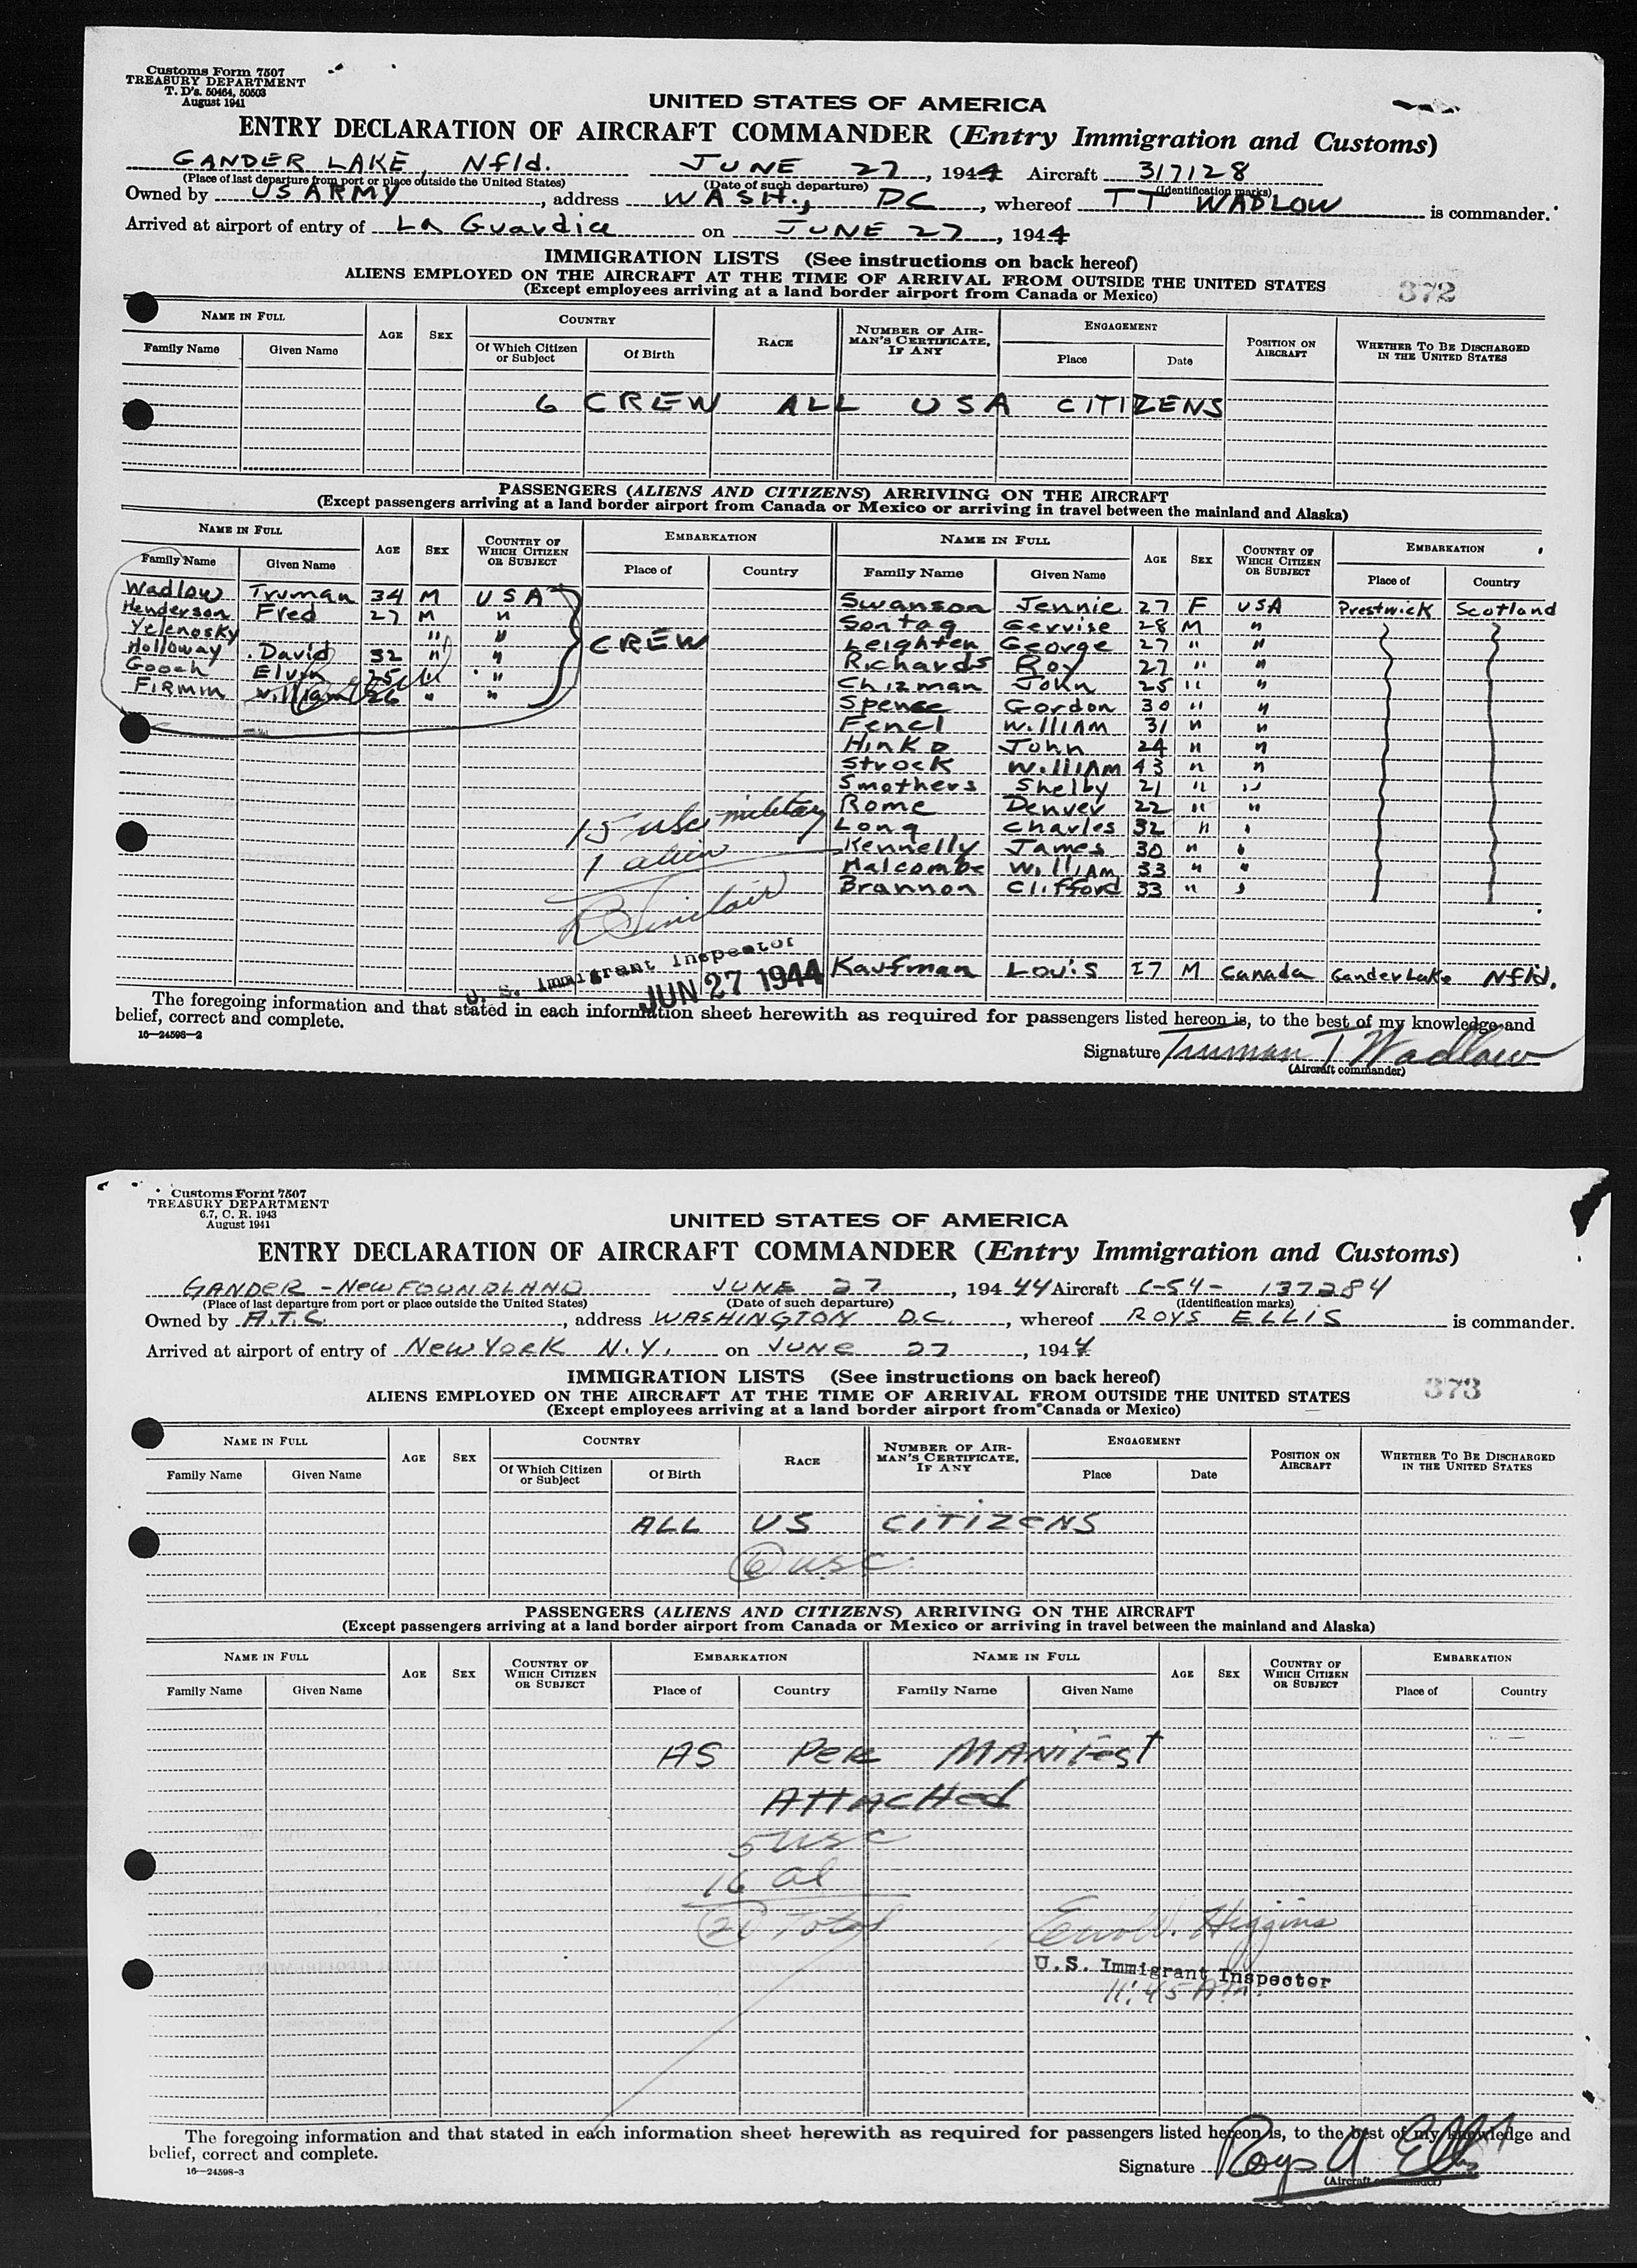 Customs Form 7507
TREASURY DEPARTMENT
T. D's. 50464, 50503
August 1941
UNITED STATES OF AMERICA
ENTRY DECLARATION OF AIRCRAFT COMMANDER (Entry Immigration and Customs)
GANDER LAKE, Nfld. JUNE 27, 1944 Aircraft 317128
(Place of last departure from port or place outside the United States) (Date of such departure) (Identification marks)
Owned by US ARMY, address WASH., DC, whereof T T WADLOW is commander.
Arrived at airport of entry of La Guardia on JUNE 27, 1944
IMMIGRATION LISTS (See instructions on back hereof)
ALIENS EMPLOYED ON THE AIRCRAFT AT THE TIME OF ARRIVAL FROM OUTSIDE THE UNITED STATES
(Except employees arriving at a land border airport from Canada or Mexico)
372
NAME IN FULL AGE SEX COUNTRY RACE NUMBER OF AIRMAN'S CERTIFICATE, IF ANY ENGAGEMENT POSITION ON AIRCRAFT WHETHER TO BE DISCHARGED IN THE UNITED STATES
Family Name Given Name Of Which Citizen or Subject Of Birth Place Date
6 CREW ALL USA CITIZENS
PASSENGERS (ALIENS AND CITIZENS) ARRIVING ON THE AIRCRAFT
(Except passengers arriving at a land border airport from Canada or Mexico or arriving in travel between the mainland and Alaska)
NAME IN FULL AGE SEX COUNTRY OF WHICH CITIZEN OR SUBJECT EMBARKATION NAME IN FULL AGE SEX COUNTRY OF WHICH CITIZEN OR SUBJECT EMBARKATION
Family Name Given Name Place of Country Family Name Given Name Place of Country
Wadlow Truman 34 M USA
Henderson Fred 27 M "
Yelenosky " "
Holloway David 32 " "
Gooch Elvin 25 " "
Firmin William 26 " "
CREW
Swanson Jennie 27 F USA Prestwick Scotland
Sontag Gervise 28 M "
Leighten George 27 " "
Richards Roy 27 " "
Chizman John 25 " "
Spence Gordon 30 " "
Fencl William 31 " "
Hinko John 24 " "
Strock William 43 " "
Smothers Shelby 21 " "
Rome Denver 22 " "
Long Charles 32 " "
Kennelly James 30 " "
Halcombe William 33 " "
Brannon Clifford 33 " "
15 usc military
1 alien
R Sinclair
U. S. Immigrant Inspector
JUN 27 1944
Kaufman Louis 27 M Canada Gander Lake Nfld.
The foregoing information and that stated in each information sheet herewith as required for passengers listed hereon is, to the best of my knowledge and
belief, correct and complete.
16—24598-2
Signature Truman T Wadlow
(Aircraft commander)
Customs Form 7507
TREASURY DEPARTMENT
6.7, C. R. 1943
August 1941
UNITED STATES OF AMERICA
ENTRY DECLARATION OF AIRCRAFT COMMANDER (Entry Immigration and Customs)
GANDER - NEWFOUNDLAND JUNE 27, 194 44 Aircraft C-54- 137284
(Place of last departure from port or place outside the United States) (Date of such departure) (Identification marks)
Owned by A.T.C., address WASHINGTON D.C., whereof ROYS ELLIS is commander.
Arrived at airport of entry of NEW YORK N.Y. on JUNE 27, 1944
IMMIGRATION LISTS (See instructions on back hereof)
ALIENS EMPLOYED ON THE AIRCRAFT AT THE TIME OF ARRIVAL FROM OUTSIDE THE UNITED STATES
(Except employees arriving at a land border airport from Canada or Mexico)
373
NAME IN FULL AGE SEX COUNTRY RACE NUMBER OF AIRMAN'S CERTIFICATE, IF ANY ENGAGEMENT POSITION ON AIRCRAFT WHETHER TO BE DISCHARGED IN THE UNITED STATES
Family Name Given Name Of Which Citizen or Subject Of Birth Place Date
ALL US CITIZENS
6 usc
PASSENGERS (ALIENS AND CITIZENS) ARRIVING ON THE AIRCRAFT
(Except passengers arriving at a land border airport from Canada or Mexico or arriving in travel between the mainland and Alaska)
NAME IN FULL AGE SEX COUNTRY OF WHICH CITIZEN OR SUBJECT EMBARKATION NAME IN FULL AGE SEX COUNTRY OF WHICH CITIZEN OR SUBJECT EMBARKATION
Family Name Given Name Place of Country Family Name Given Name Place of Country
AS PER MANIFEST
ATTACHED
5 usc
16 al
21 Total
W. Higgins
U.S. Immigrant Inspector
11:45 AM
The foregoing information and that stated in each information sheet herewith as required for passengers listed hereon is, to the best of my knowledge and
belief, correct and complete.
16—24598-3
Signature Roys A Ellis
(Aircraft commander)